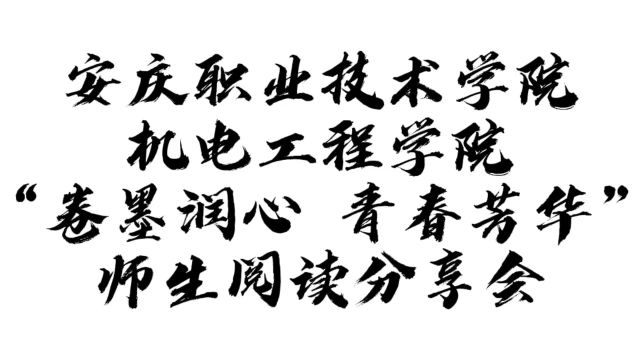 安庆职业技术学院
机电工程学院
“卷墨润心 青春芳华”
师生阅读分享会